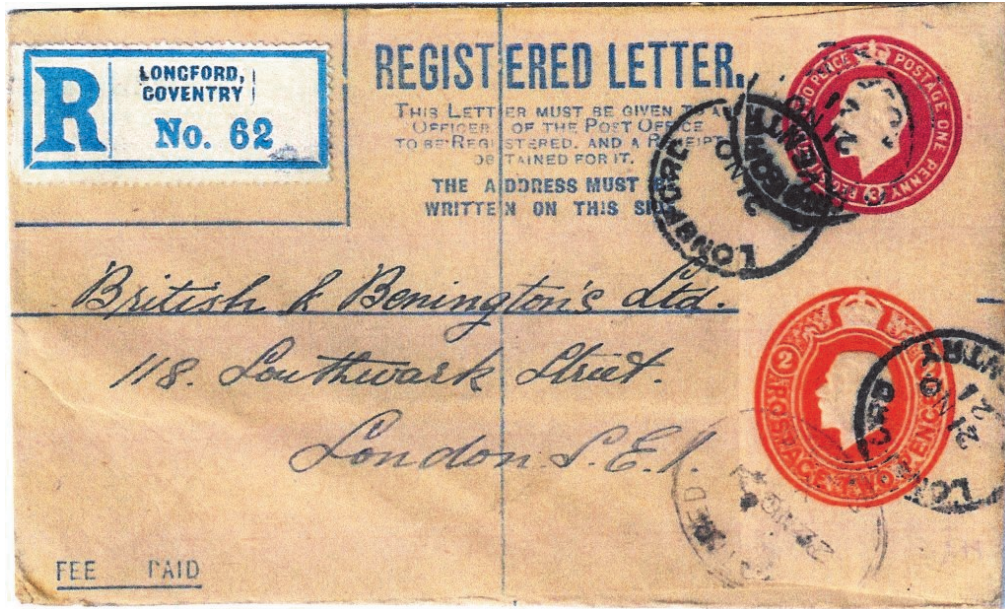 R
LONGFORD,
COVENTRY
No. 62
REGISTERED LETTER.
THIS LETTER MUST BE GIVEN TO AN
OFFICER OF THE POST OFFICE
TO BE REGISTERED, AND A RECEIPT
OBTAINED FOR IT.
THE ADDRESS MUST BE
WRITTEN ON THIS SIDE
POSTAGE ONE PENNY
LONGFORD
21 NO
British & Benington's Ltd.
118. Southwark Street.
London S.E.1.
2
POSTAGE TWO PENCE
LONGFORD
21 NO
21
FEE PAID